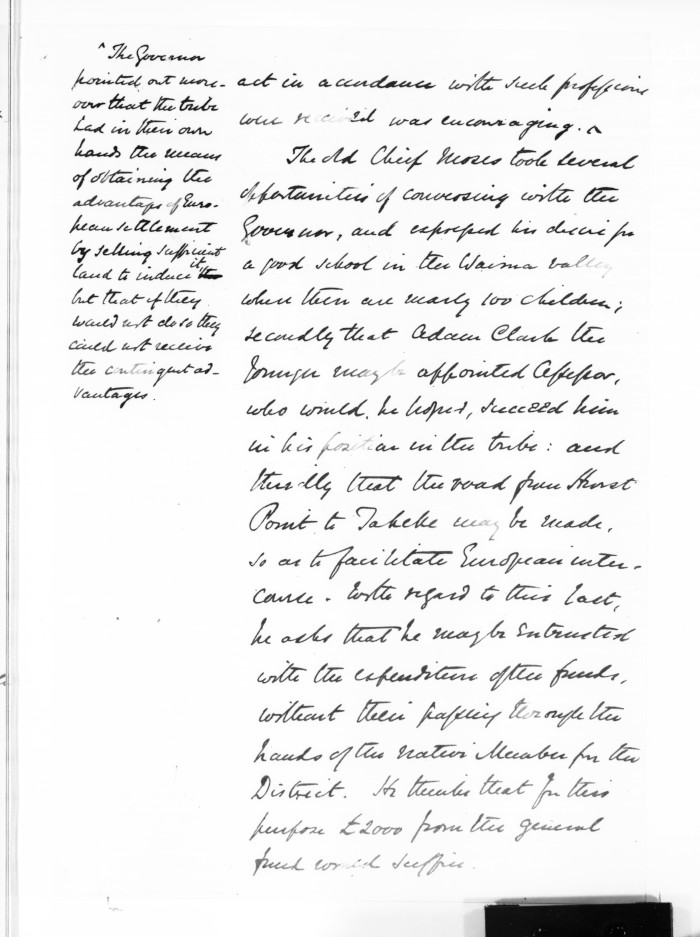 ^ The Governor
pointed out more-
over that the tribe
had in their own
hands the means
of obtaining the
advantages of Euro-
pean settlement
by selling sufficient
land to induce it
but that if they
would not do so they
could not receive
the contingent ad-
vantages.
act in accordance with such professions
were received was encouraging. ^
The old Chief Moses took several
opportunities of conversing with the
Governor, and expressed his desire for
a good school in the Waima valley
where there are nearly 100 children;
secondly that Adam Clark the
Younger may be appointed Assessor,
who would, he hoped, succeed him
in his position in the tribe: and
thirdly that the road from Hurst
Point to Taheke may be made,
so as to facilitate European inter-
course. With regard to this last,
he asks that he may be entrusted
with the expenditure of the funds,
without their passing through the
hands of the Native Member for the
District. He thinks that for this
purpose £2000 from the general
fund would suffice.